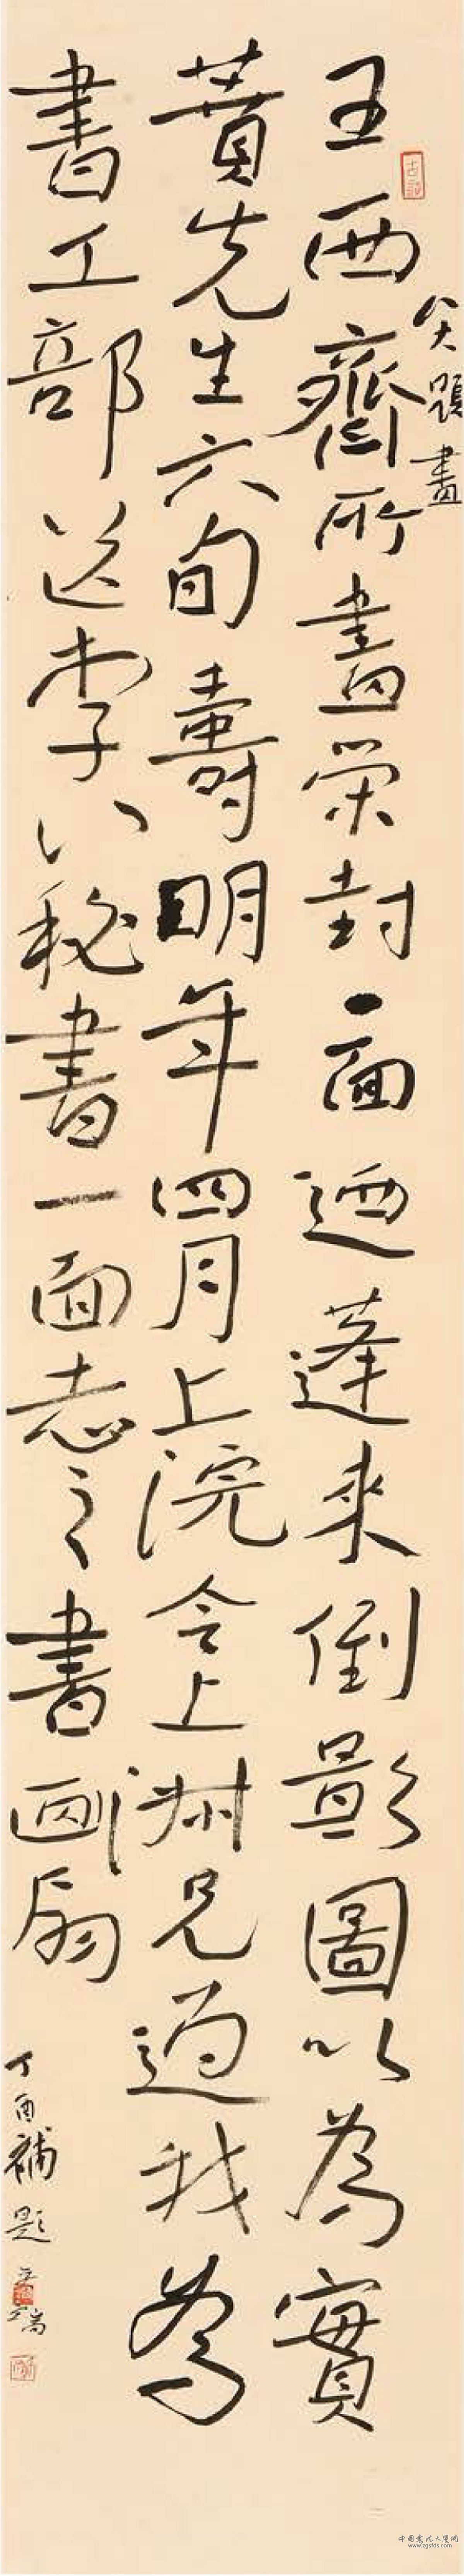 題畫
王西齋所畫榮封一面迺蓬來倒影圖以為實
蕡先生六旬壽明年四月上浣令上兄過我為
書工部送李八秘書一面志之書画扇
丁酉補題